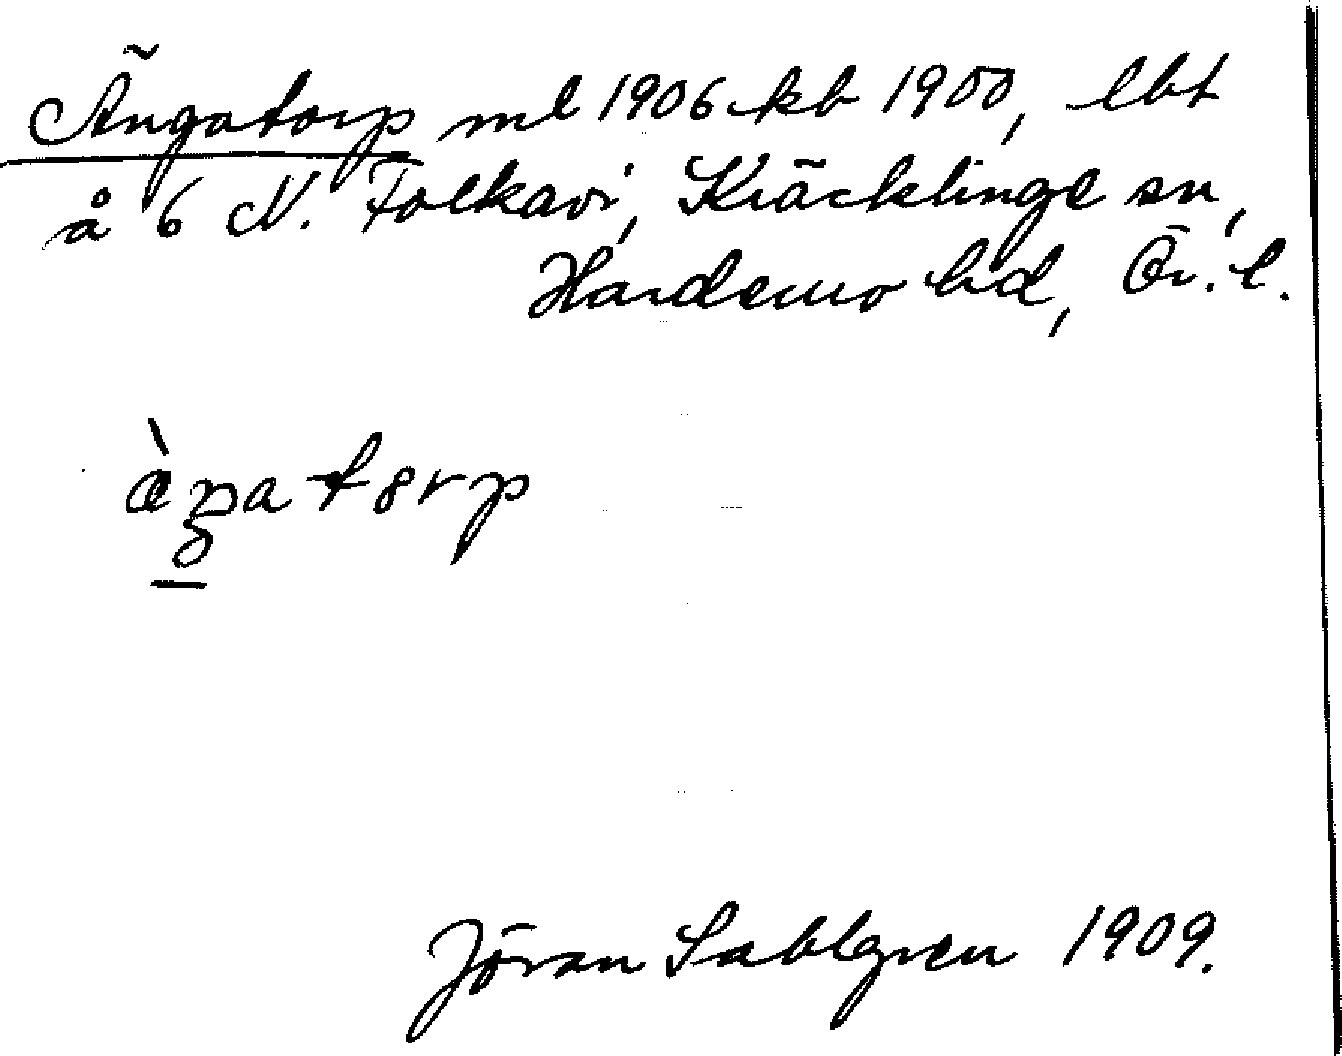 Ängatorp ml 1906 kb 1900, lbt
å 6 N. Folkavi, Kräcklinge sn,
Hardemo hd, Ör. l.
Jöran Sahlgren 1909.